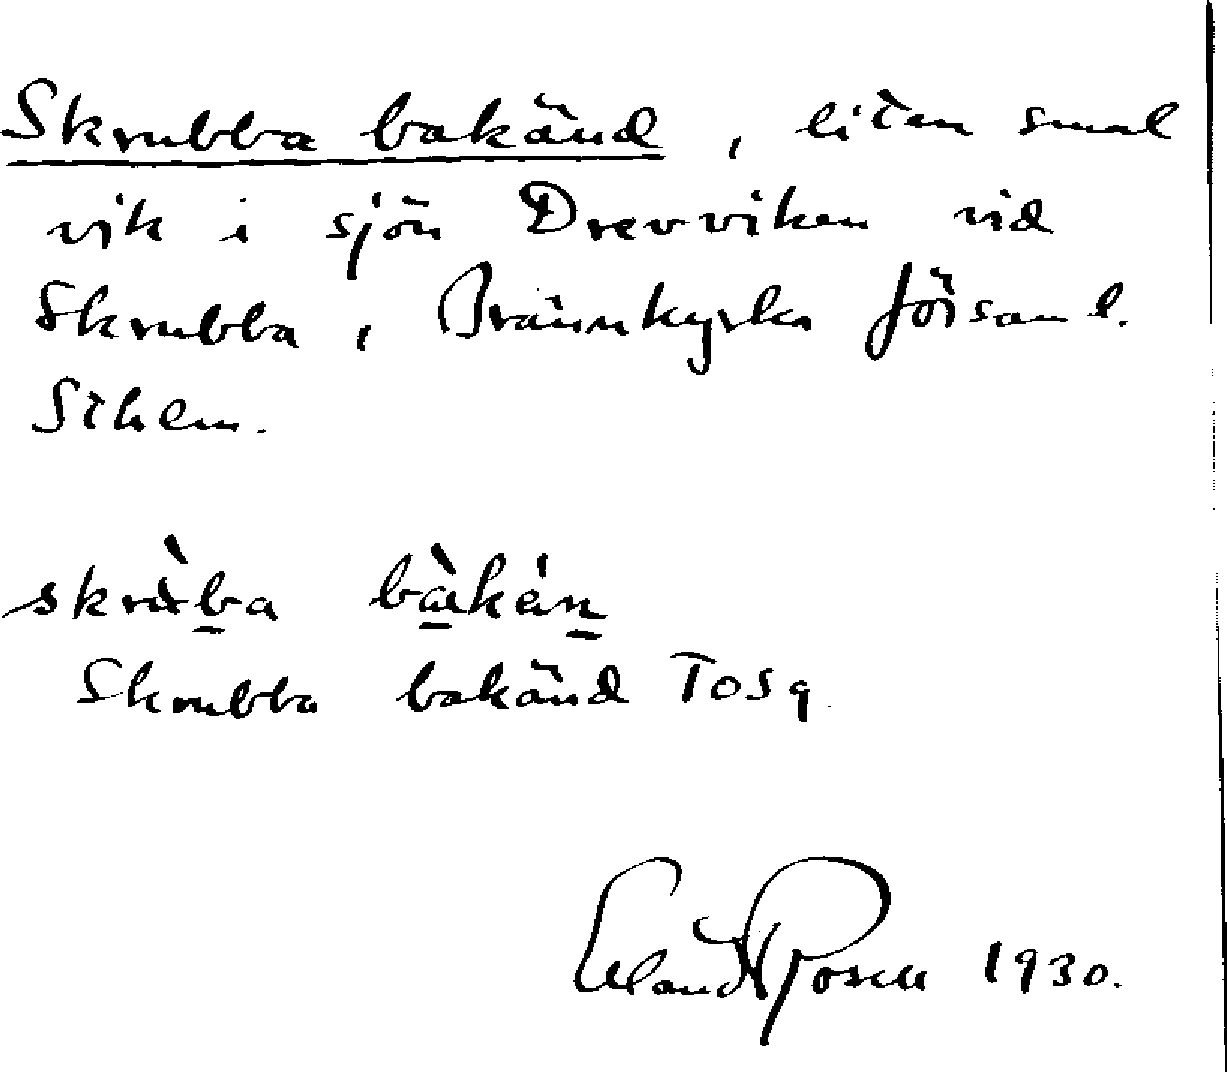 Skrubba bakänd, liten smal
vik i sjön Drevviken vid
Skrubba, Brännkyrka församl.
Sthlm.
bàkän
Skrubba bakänd TOSq
Erland Rosell 1930.